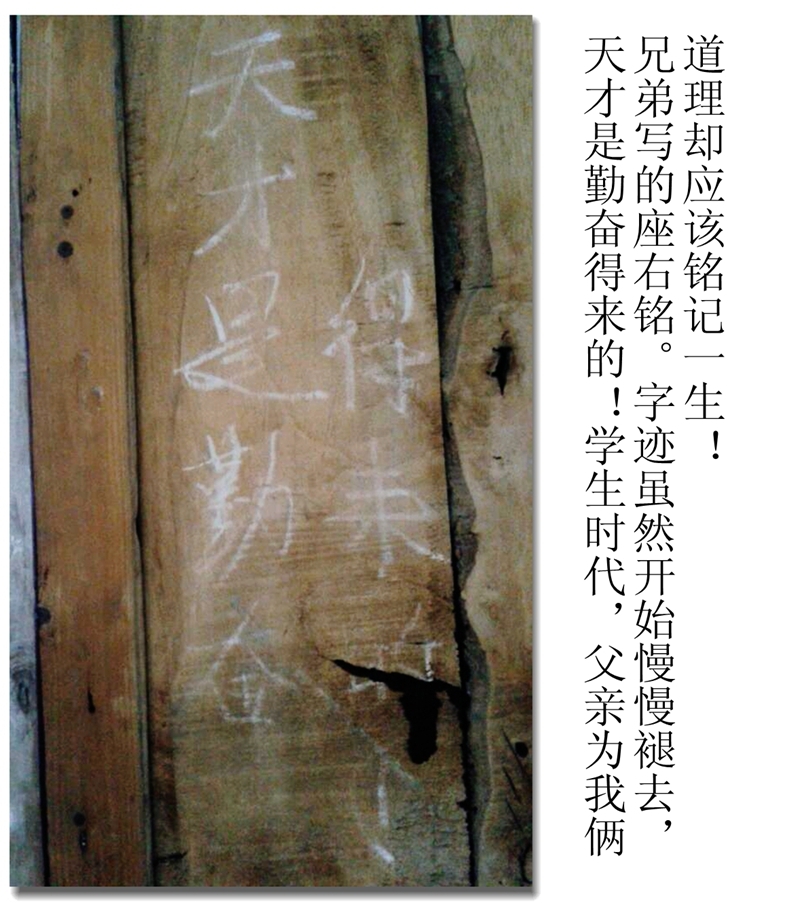 天才是勤奋
得来的！
天才是勤奋得来的！学生时代，父亲为我俩
兄弟写的座右铭。字迹虽然开始慢慢褪去，
道理却应该铭记一生！